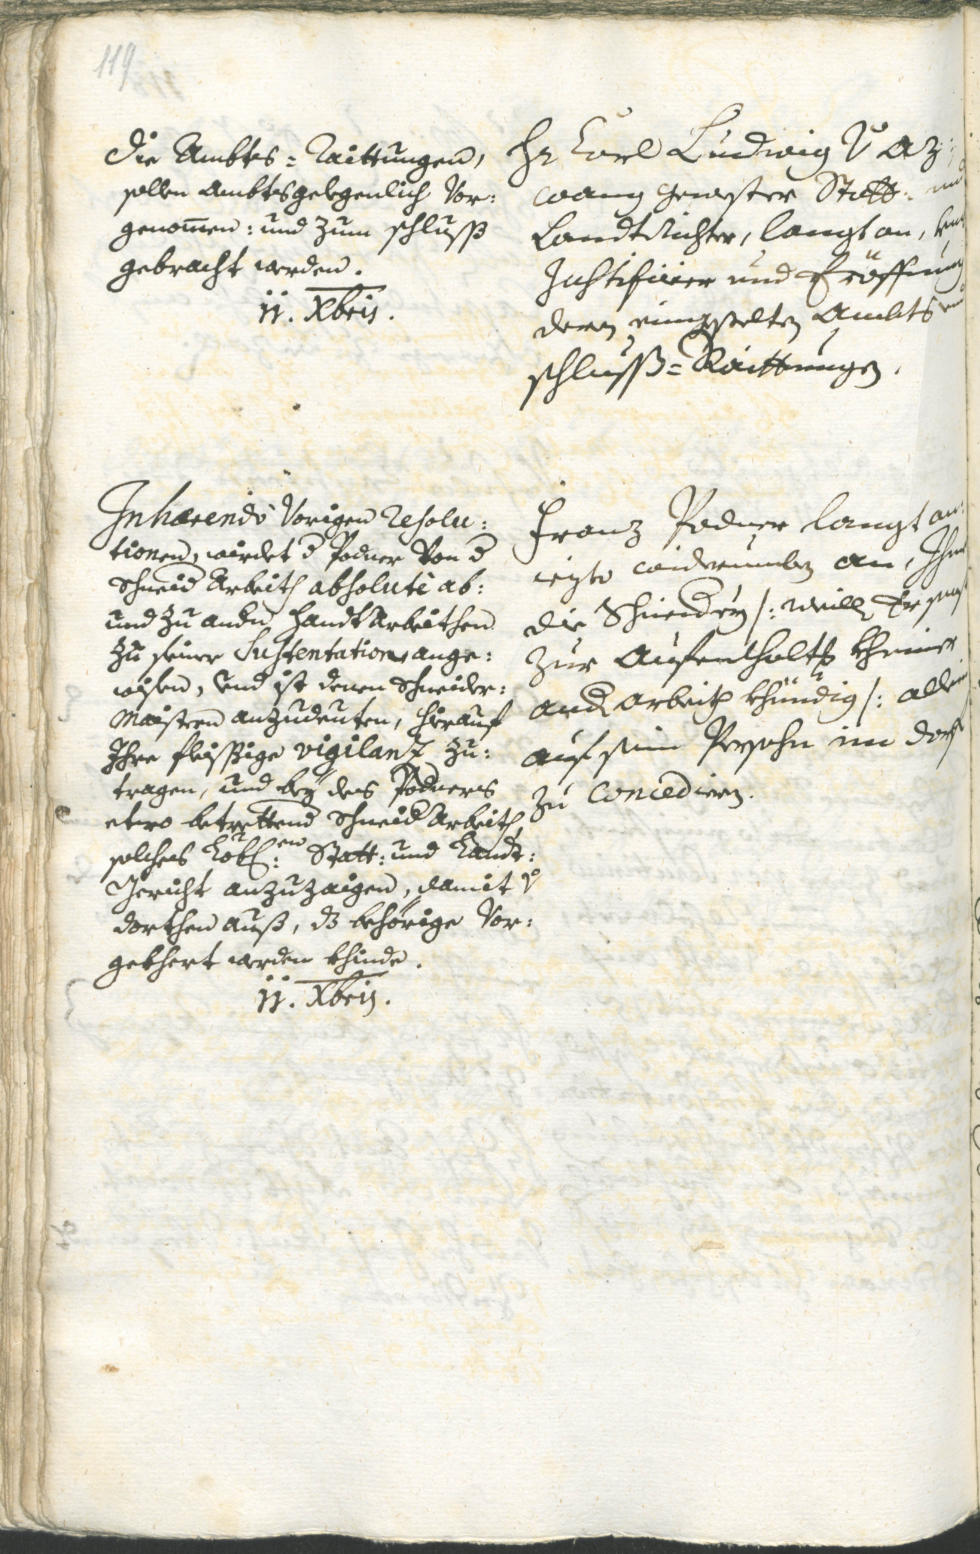 119
Die Ambts=Raittungen,
sollen Ambtsgelegenlich Vor:
genom̅en: und zum schluss
gebracht werden.
11. Xbris.
Hr Carl Ludwig V Az:
wang gewester Statt: und
Landtrichter, langt an,
Justificier und Eröffnung
deren eingestelten Ambts
schluss=Raittungen.
Inhærendo Vorigen Resolu:
tionen, wirdet d Podner Von d
Schneid Arbeith absolutè ab:
und zu andn Handt Arbeithen
zu seiner Sustentation, ange:
wisen, Und ist denen Schneider:
Maistern anzudeuten, hierauf
Ihre fleissige vigilanz zu:
tragen, und bey des Podners
etwo betrettend Schneid Arbeith,
solches Löbl: en Statt: und Landt:
Gericht anzuzaigen, damit V
dorthen auss, dz behörige Vor:
gekhert werden khinde.
11. Xbris.
Franz Podner langt an:
iezto widerumben an, Ihme
die Schneiderey /: weill Er sonst
zur Aufenthalt kheiner
and Arbeith khündig :/ allein
auf sein Persohn im dorf
zu concedieren.